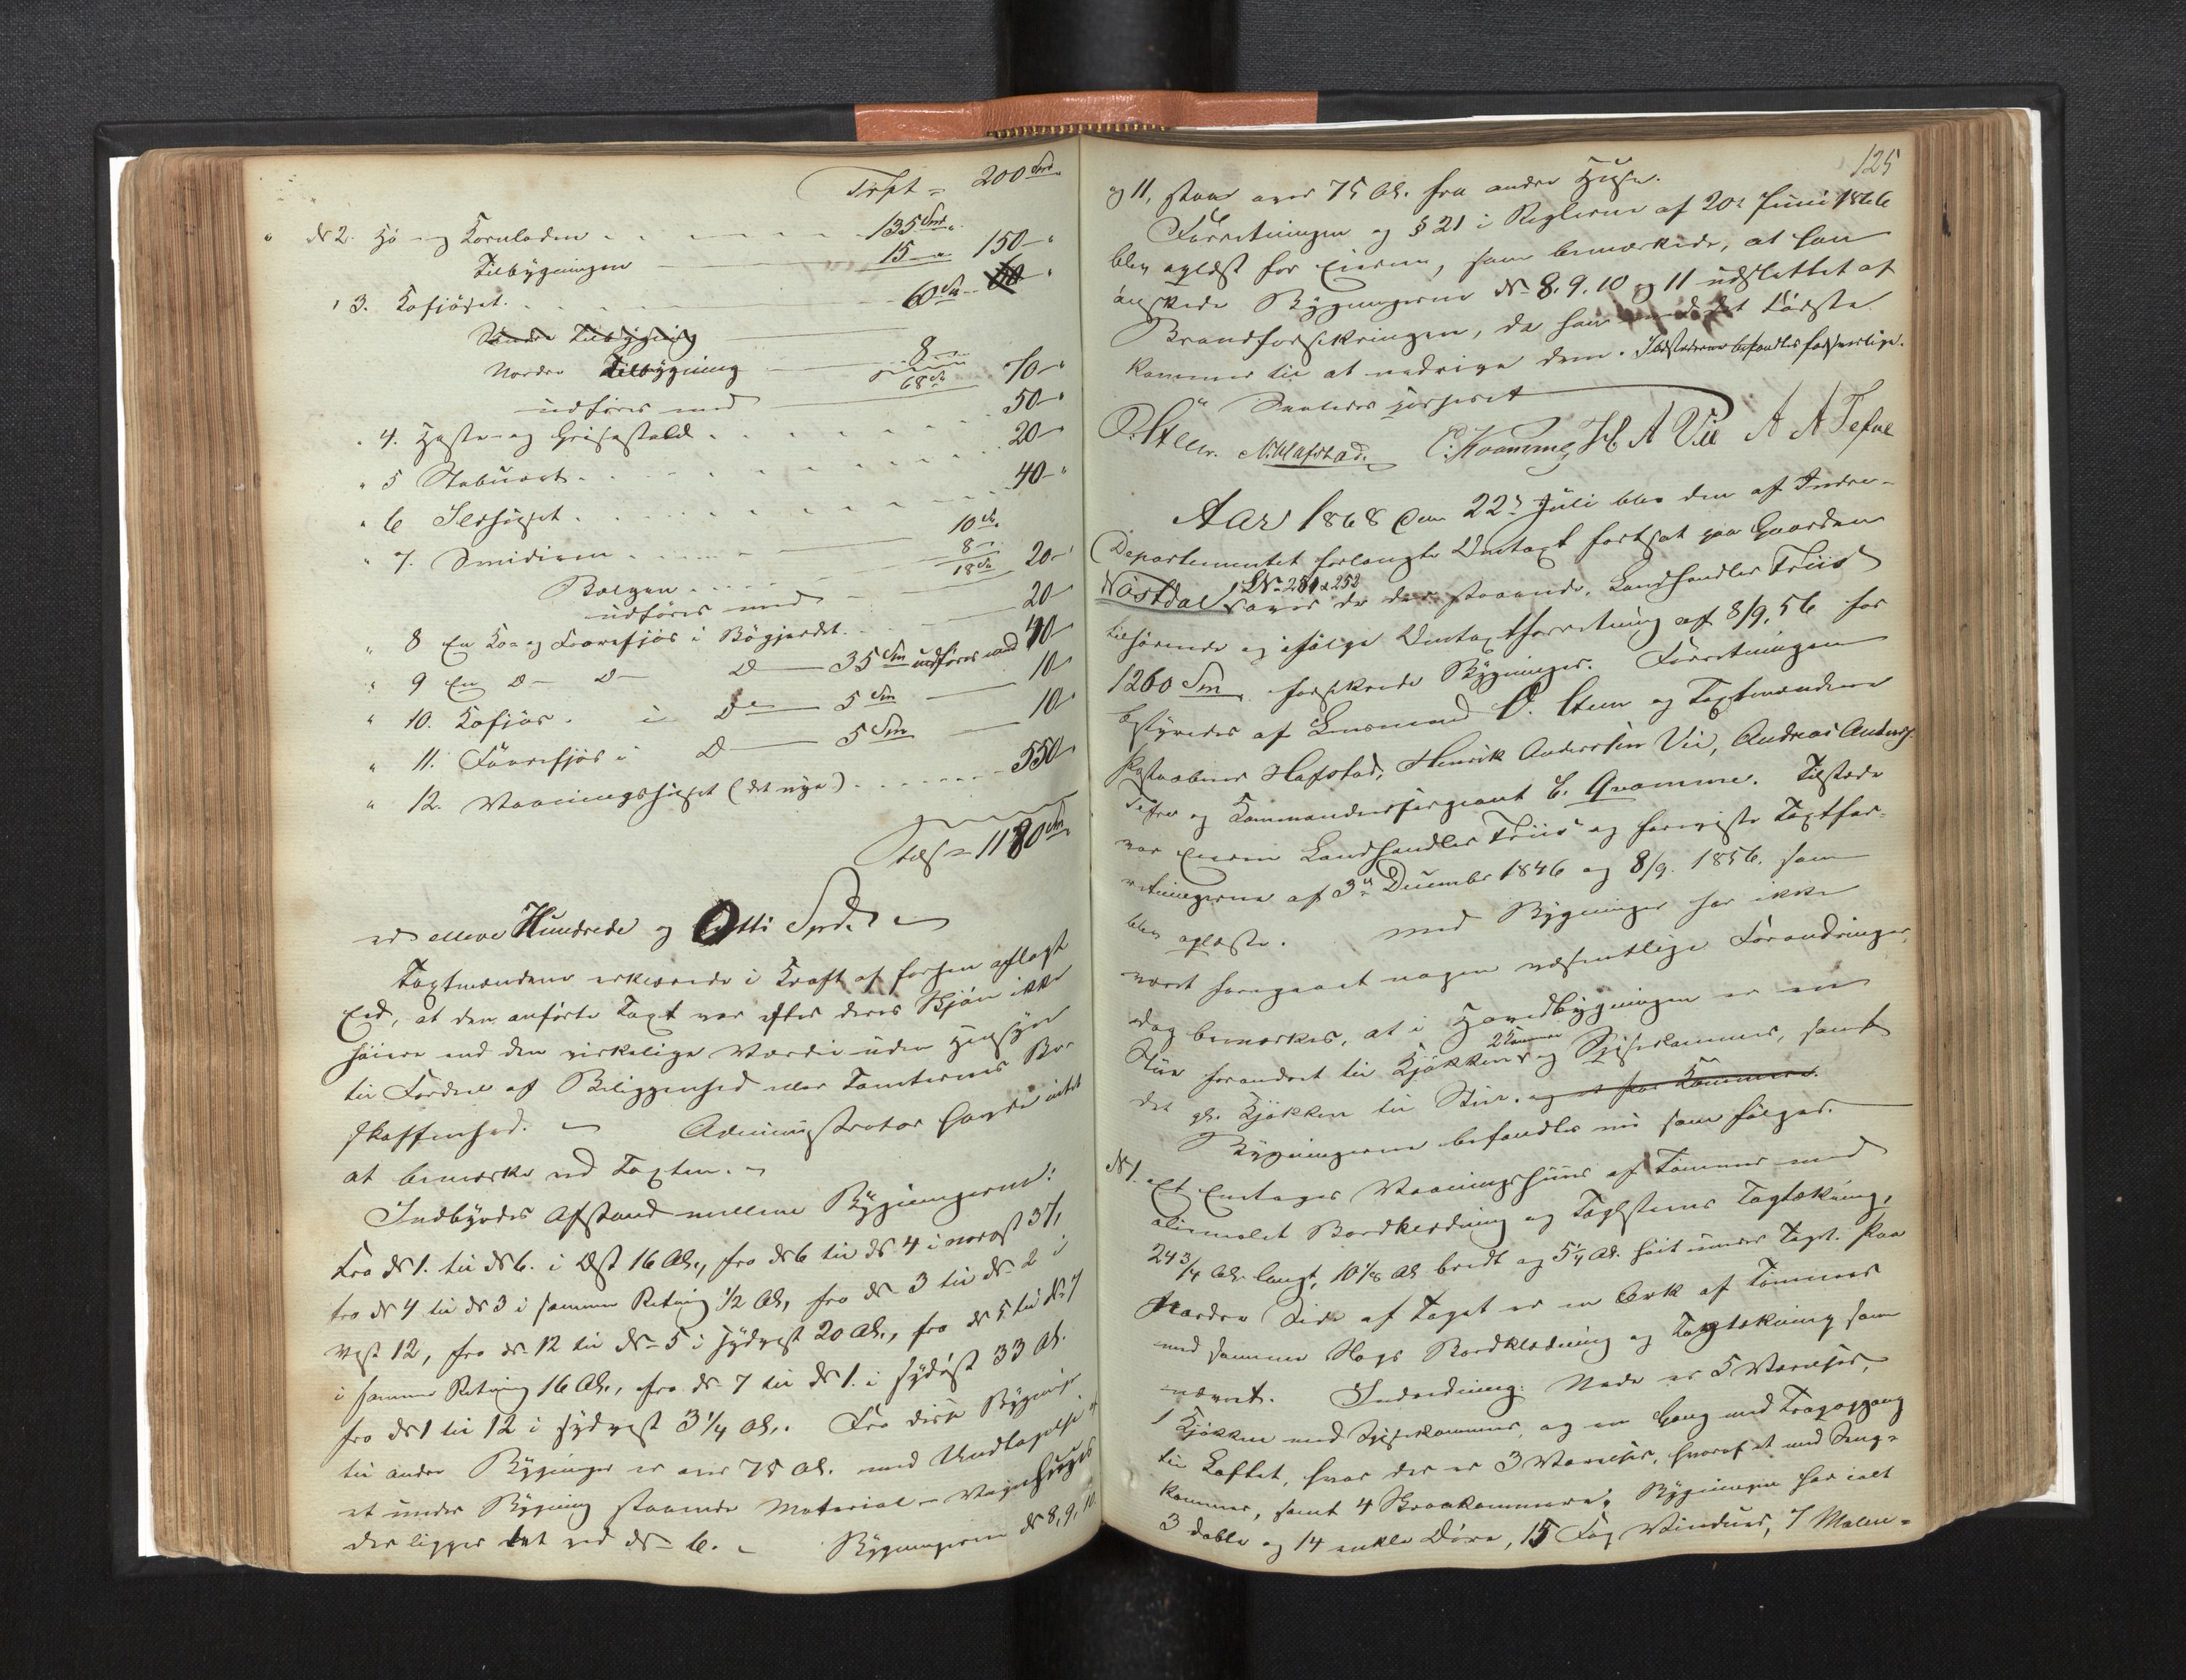 Trspt = 200 Spd.
" N 2. Hö- og Kornladen . . . . . 135 Spd. "
Tilbygningen — 15 — " 150 — "
" 3. Kofjöset. . . . . 60 Sp. 60 "
Søndre Tilbygning
Nordre Tilbygning — 8 —
udføres med 68 Sp. 70 — "
" 4. Heste- og Grisestald . . . . . 50 — "
" 5 Staburet . . . . . 20 —
" 6 Ildhuset . . . . . 40 — "
" 7. Smidien . . . . . 10 Sp.
Bælgen . . . . . 8 —
udføres med 18 Sp. 20 — "
" 8 En Ko- og Faarefjös i Bøgjerdet . . . 20 —
" 9 En D — D — D — 35 Spd udføres med 40 —
" 10. Kofjös . i D — 5 Spd — 10 —
" 11. Faarefjös i D — 5 Spd — 10 —
" 12. Vaaningshuset (det nye) . . . . . 550 —
Tils = 1180 Spd
er elleve Hundrede og Otti Spd.
Taxtmændene erklærede i Kraft af forhen aflagt
Eed, at den anførte Taxt var efter deres Skjön ikke
höiere end den virkelige Værdi uden Hensyn
til Fordeel af Beliggenhed eller Tomternes Be-
skaffenhed. — Administrator havde intet
at bemærke ved Taxten. —
Indbyrdes Afstand mellem Bygningerne:
Fra N 1. til N 6. i Øst 16 Al., fra N 6 til N 4 i nordost 37,
fra N 4 til N 3 i samme Retning 1/2 Al, fra N 3 til N 2 i
Vest 12, fra N 12 til N 5 i Sydvest 20 Al., fra N 5 til N 7
i samme Retning 16 Al., fra N 7 til N 1. i sydöst 33 Al.
fra N 1 til 12 i sydvest 3 1/4 Al.. Fra disse Bygninger
til andre Bygninger er over 75 Al. med Undtagelse af
et under Bygning staaende Material- Vognhuus
der ligger tæt ved N 6. — Bygningerne N 8, 9, 10
125
og 11, staar over 75 Al. fra andre Huse.
Forretningen og § 21 i Reglerne af 20de Juni 1846
blev oplæst for Eieren, som bemærkede, at han
önskede Bygningerne N 8, 9, 10 og 11 udslettet af
Brandforsikringen, da han med det Første
kommer til at nedrive dem. Ildstederne befandtes forsvarlige.
Saaledes passeret
O. Steen. N. Hafstad. C. Kvamme, H A Vie A A Tefre
Aar 1868 den 22de Juli blev den af Indre-
Departementet forlangte Omtaxt fortsat paa Gaarden
Nöstdal, LN 251 & 252 over de der staaende, Landhandler Friis
tilhörende og ifölge Omtaxtforretning af 8/9, 56 for
1260 Spd. forsikrede Bygninger. Forretningen
bestyredes af Lensmand O. Steen og Taxtmændene
Postaabner Hafstad, Henrik Anderssen Vie, Andreas Anders.
Tefre og Kommandersergeant C. Qvamme. Tilstede
var Eieren Landhandler Friis og fremviste Taxtfor-
retningerne af 3de Decembr 1846 og 8/9. 1856. som
blev oplæste. Med Bygninger har ikke
været foregaaet nogen væsentlige Forandringer,
dog bemærkes, at i Hovedbygningen er en
Stue forandret til Kjøkken, 2 Kammer og Spisekammer, samt
det gl. Kjøkken til Stue. og et par Kammere.
Bygningerne befandtes nu som fölger.
N 1. Et Eetages Vaaningshuus af Tømmer med
oliemalet Bordklædning og Taglsteens Tagtækning,
24 3/4 Al. langt, 10 1/8 Al bredt og 5 1/4 Al. höit under Taget. Paa
Nordre Side af Taget er en Ark af Tømmer
med samme Slags Bordklædning og Tagtækning som
nævnt. Indredning: Nede er 5 Værelser,
1 Kjøkken med Spisekammer, og en Gang med Trapopgang
til Loftet, hvor der er 3 Værelser, hvoraf et med Senge-
kammer, samt 4 Skraakammere; Bygningen har ialt
3 doble og 14 enkle Døre, 15 Fag Vinduer, 7 Male-